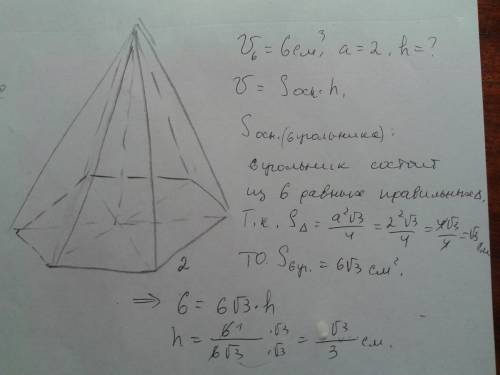 V₆ = 6 см³, a = 2, h = ?
V = Sосн · h,
Sосн.(6угольника):
6угольник состоит
из 6 равных правильных Δ.
Т.к. S△ = a²√3/4 = 2²√3/4 = 4√3/4 = √3 см
ТО. S6уг. = 6√3 см².
2
⇒ 6 = 6√3 · h
h = 6 1 · √3 / 6√3 · √3 = √3/3 см.